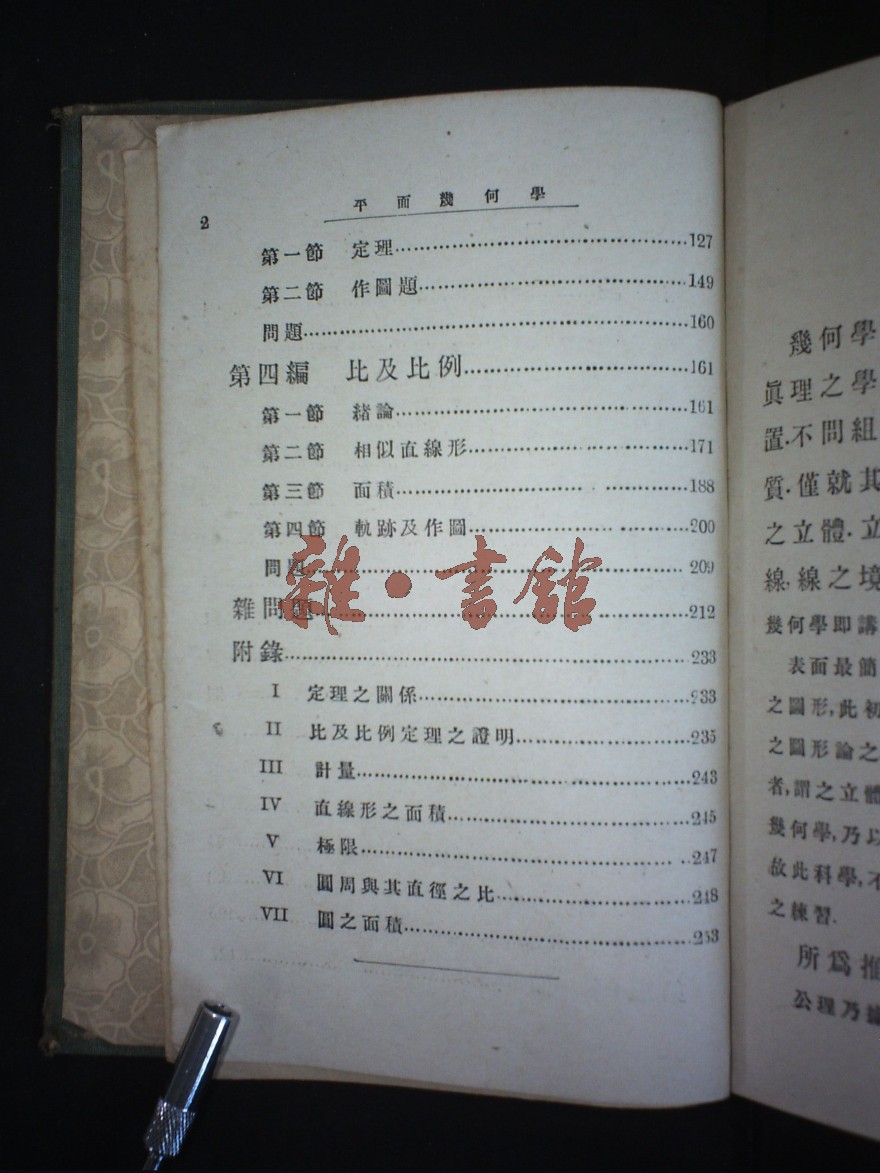 2
平面幾何學
第一節 定理……127
第二節 作圖題……149
問題……160
第四編 比及比例……161
第一節 緒論……161
第二節 相似直線形……171
第三節 面積……188
第四節 軌跡及作圖……200
問題……209
雜問題……212
附錄……233
I 定理之關係……233
II 比及比例定理之證明……235
III 計量……243
IV 直線形之面積……245
V 極限……247
VI 圓周與其直徑之比……248
VII 圓之面積……253
雜·書館
幾何學
眞理之學
置.不問組
質.僅就其
之立體.立
線.線之境
幾何學卽講
表面最簡
之圖形,此初
之圖形論之
者,謂之立體
幾何學,乃以
故此科學,不
之練習.
所爲推
公理乃據